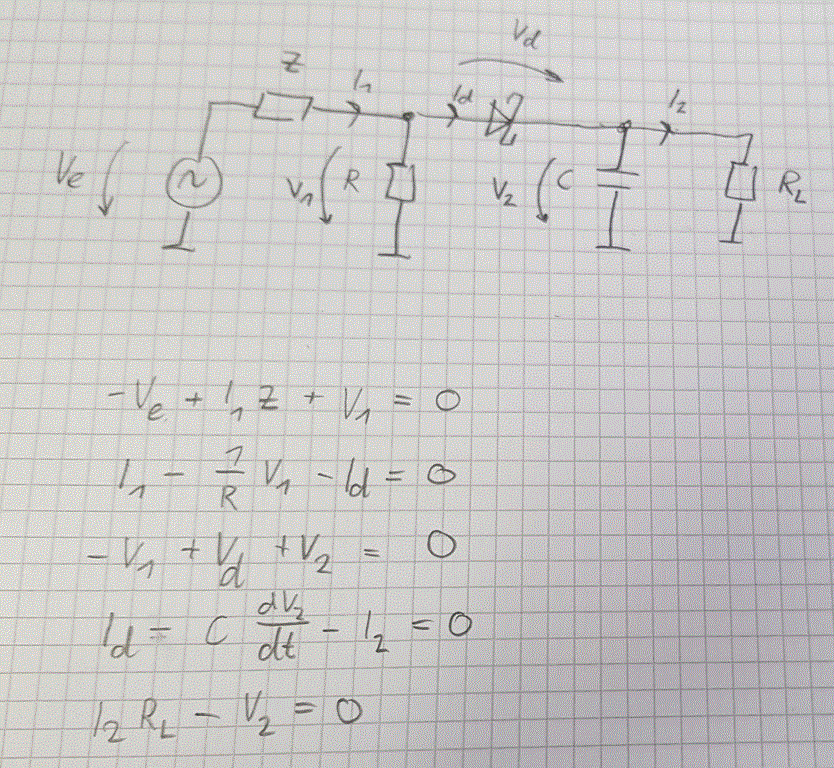 Vd
Z I1 Id I2
Ve V1 R V2 C RL
-Ve + I1 Z + V1 = 0
I1 - 1/R V1 - Id = 0
-V1 + Vd + V2 = 0
Id = C dV2/dt - I2 = 0
I2 RL - V2 = 0